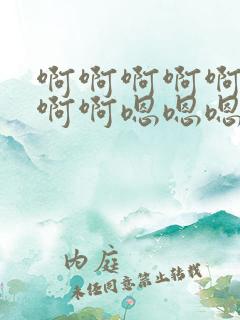 啊啊啊啊啊
啊啊嗯嗯嗯
内庭
未经同意禁止转载